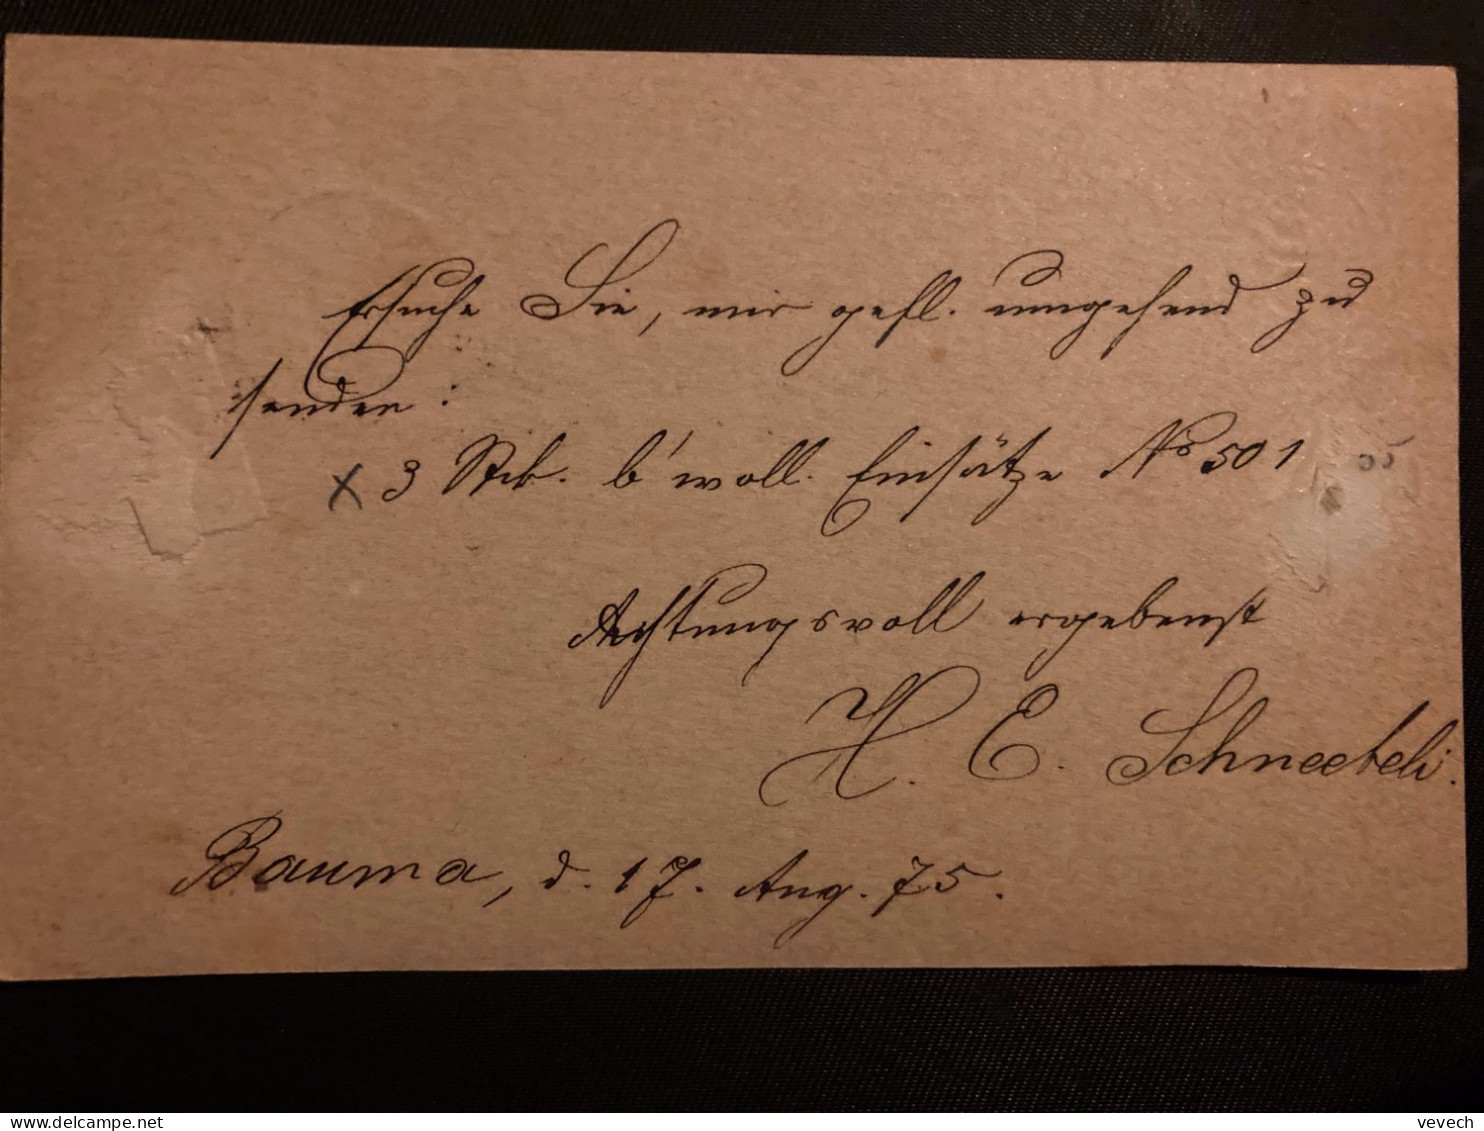 Ersuche Sie, mir gefl. umgehend zu
senden:
x 3 Stck. b'woll. Einsätze No 501
Achtungsvoll ergebenst
H. E. Schneebeli.
Bauma, d. 17. Aug. 75.
vevech
DELCAMPE.NET